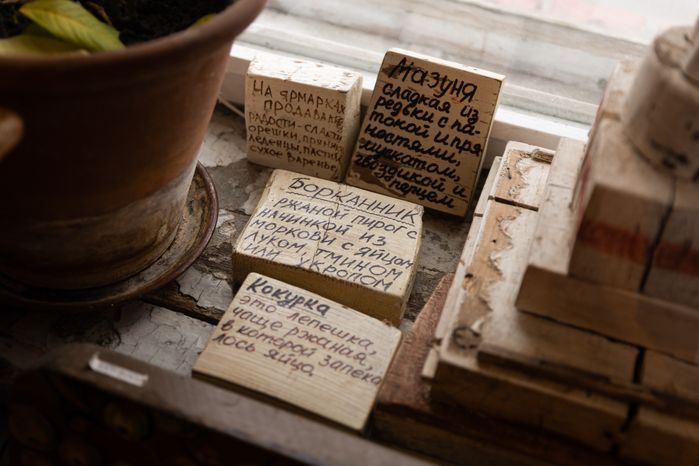 На ярмарках
продавали
радости-сласти
орешки, пряни
леденцы, пасти
сухое варенье
Мазуня
сладкая из
редьки с па-
токой и пря-
ностями,
мускатом,
гвоздикой и
перцем
Борканник
ржаной пирог с
начинкой из
моркови с яйцом
луком, тмином
или укропом
Кокурка
это лепешка,
чаще ржаная,
в которой запека
лось яйцо.